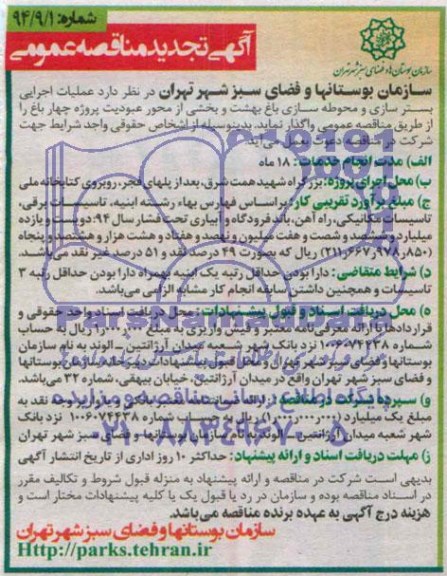 شماره: ۹۴/۹/۱
آگهی تجدید مناقصه عمومی
سازمان بوستانها و فضای سبز شهر تهران
سازمان بوستانها و فضای سبز شهر تهران در نظر دارد عملیات اجرایی
بستر سازی و محوطه سازی باغ بهشت و بخشی از محور عبودیت پروژه چهار باغ را
از طریق مناقصه عمومی واگذار نماید. بدینوسیله از اشخاص حقوقی واجد شرایط جهت
شرکت در مناقصه دعوت بعمل می‌آید.
الف) مدت انجام خدمات: ۱۸ ماه
ب) محل اجرای پروژه: بزرگراه شهید همت شرق، بعد از پلهای فجر، روبروی کتابخانه ملی
ج) مبلغ برآورد تقریبی کار: براساس فهارس بهاء رشته ابنیه، تاسیسات برقی،
تاسیسات مکانیکی، راه آهن، باند فرودگاه و آبیاری تحت فشار سال ۹۴: دویست و یازده
میلیارد و ششصد و شصت و هفت میلیون و نهصد و هفتاد و هشت هزار و هشتصد و پنجاه
(۲۱۱٫۶۶۷٫۹۷۸٫۸۵۰) ریال که بصورت ۴۹ درصد نقد و ۵۱ درصد غیر نقد می‌باشد.
د) شرایط متقاضی: دارا بودن حداقل رتبه یک ابنیه بهمراه دارا بودن حداقل رتبه ۳
تاسیسات و همچنین داشتن سابقه انجام کار مشابه الزامی می‌باشد.
ه) محل دریافت اسناد و قبول پیشنهادات: محل دریافت اسناد واحد حقوقی و
قراردادها با ارائه معرفی نامه معتبر و فیش واریزی به مبلغ ریال به حساب
شماره ۱۰۰۶۰۷۴۴۳۸ نزد بانک شهر شعبه میدان آرژانتین - الوند به نام سازمان
بوستانها و فضای سبز شهر تهران و محل قبول پیشنهادات دبیرخانه سازمان بوستانها
و فضای سبز شهر تهران واقع در میدان آرژانتین، خیابان بیهقی، شماره ۳۲ می‌باشد.
و) سپرده شرکت در مناقصه: ارائه ضمانت نامه بانکی و یا واریز وجه نقد به
مبلغ یک میلیارد (۱٫۰۰۰٫۰۰۰٫۰۰۰) ریال به حساب شماره ۱۰۰۶۰۷۴۴۳۸ نزد بانک
شهر شعبه میدان آرژانتین - الوند به نام سازمان بوستانها و فضای سبز شهر تهران
ز) مهلت دریافت اسناد و ارائه پیشنهاد: حداکثر ۱۰ روز اداری از تاریخ انتشار آگهی
بدیهی است شرکت در مناقصه و ارائه پیشنهاد به منزله قبول شروط و تکالیف مقرر
در اسناد مناقصه بوده و سازمان در رد یا قبول یک یا کلیه پیشنهادات مختار است و
هزینه درج آگهی به عهده برنده مناقصه می‌باشد.
سازمان بوستانها و فضای سبز شهر تهران
Http://parks.tehran.ir
پایگاه اطلاع رسانی مناقصه و مزایده
۰۲۱-۸۸۳۴۹۶۷۰-۵